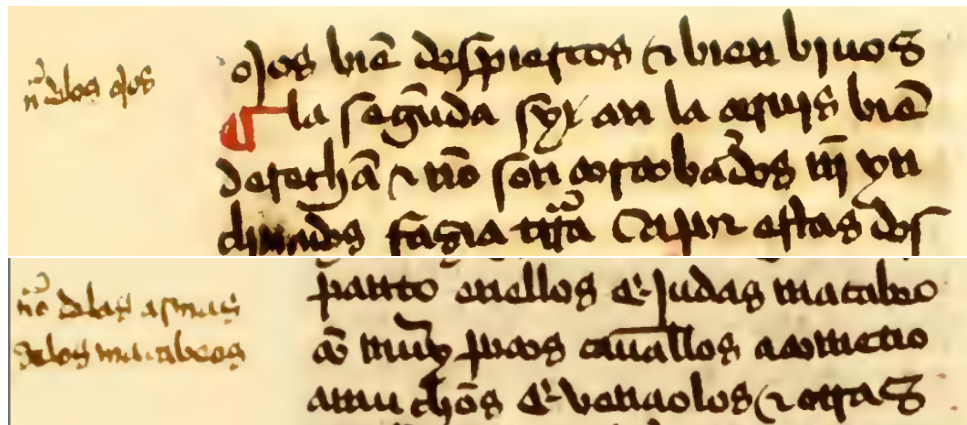 nō delos ojos
ojos biē despiertos & bien biuos
la segūda syẏ an la aquis biē
derechā & nō son corcobados nī yn
chados fazia trřa Ca por estas dos
nō delas armas
delos macabeos
panto enellos & judas macabeo
cō muy pocos cauallos acometio
amuchos & venciolos & otras